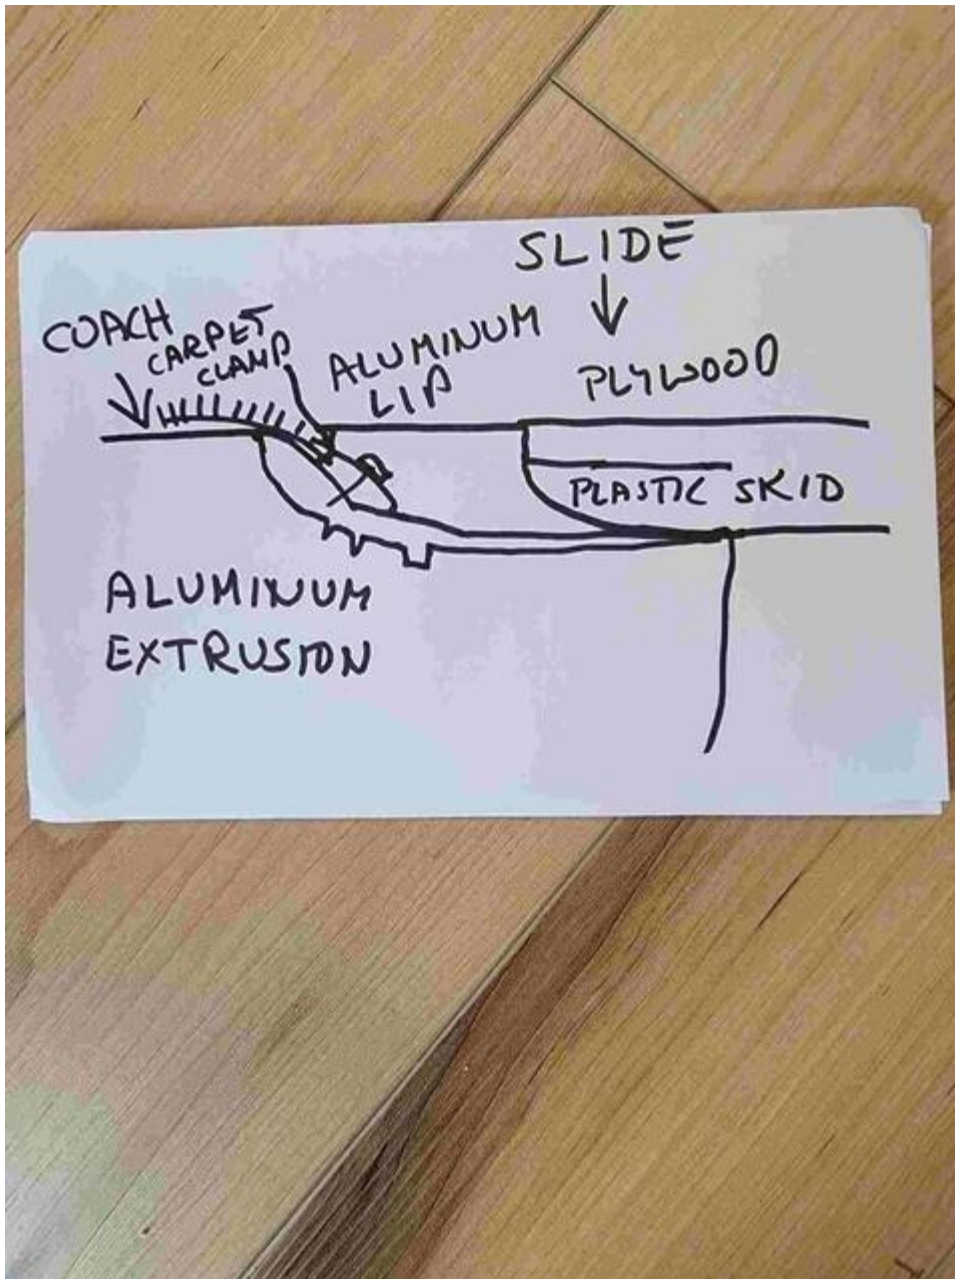 SLIDE
COACH
CARPET
CLAMP
ALUMINUM
LIP
PLYWOOD
PLASTIC SKID
ALUMINUM
EXTRUSION